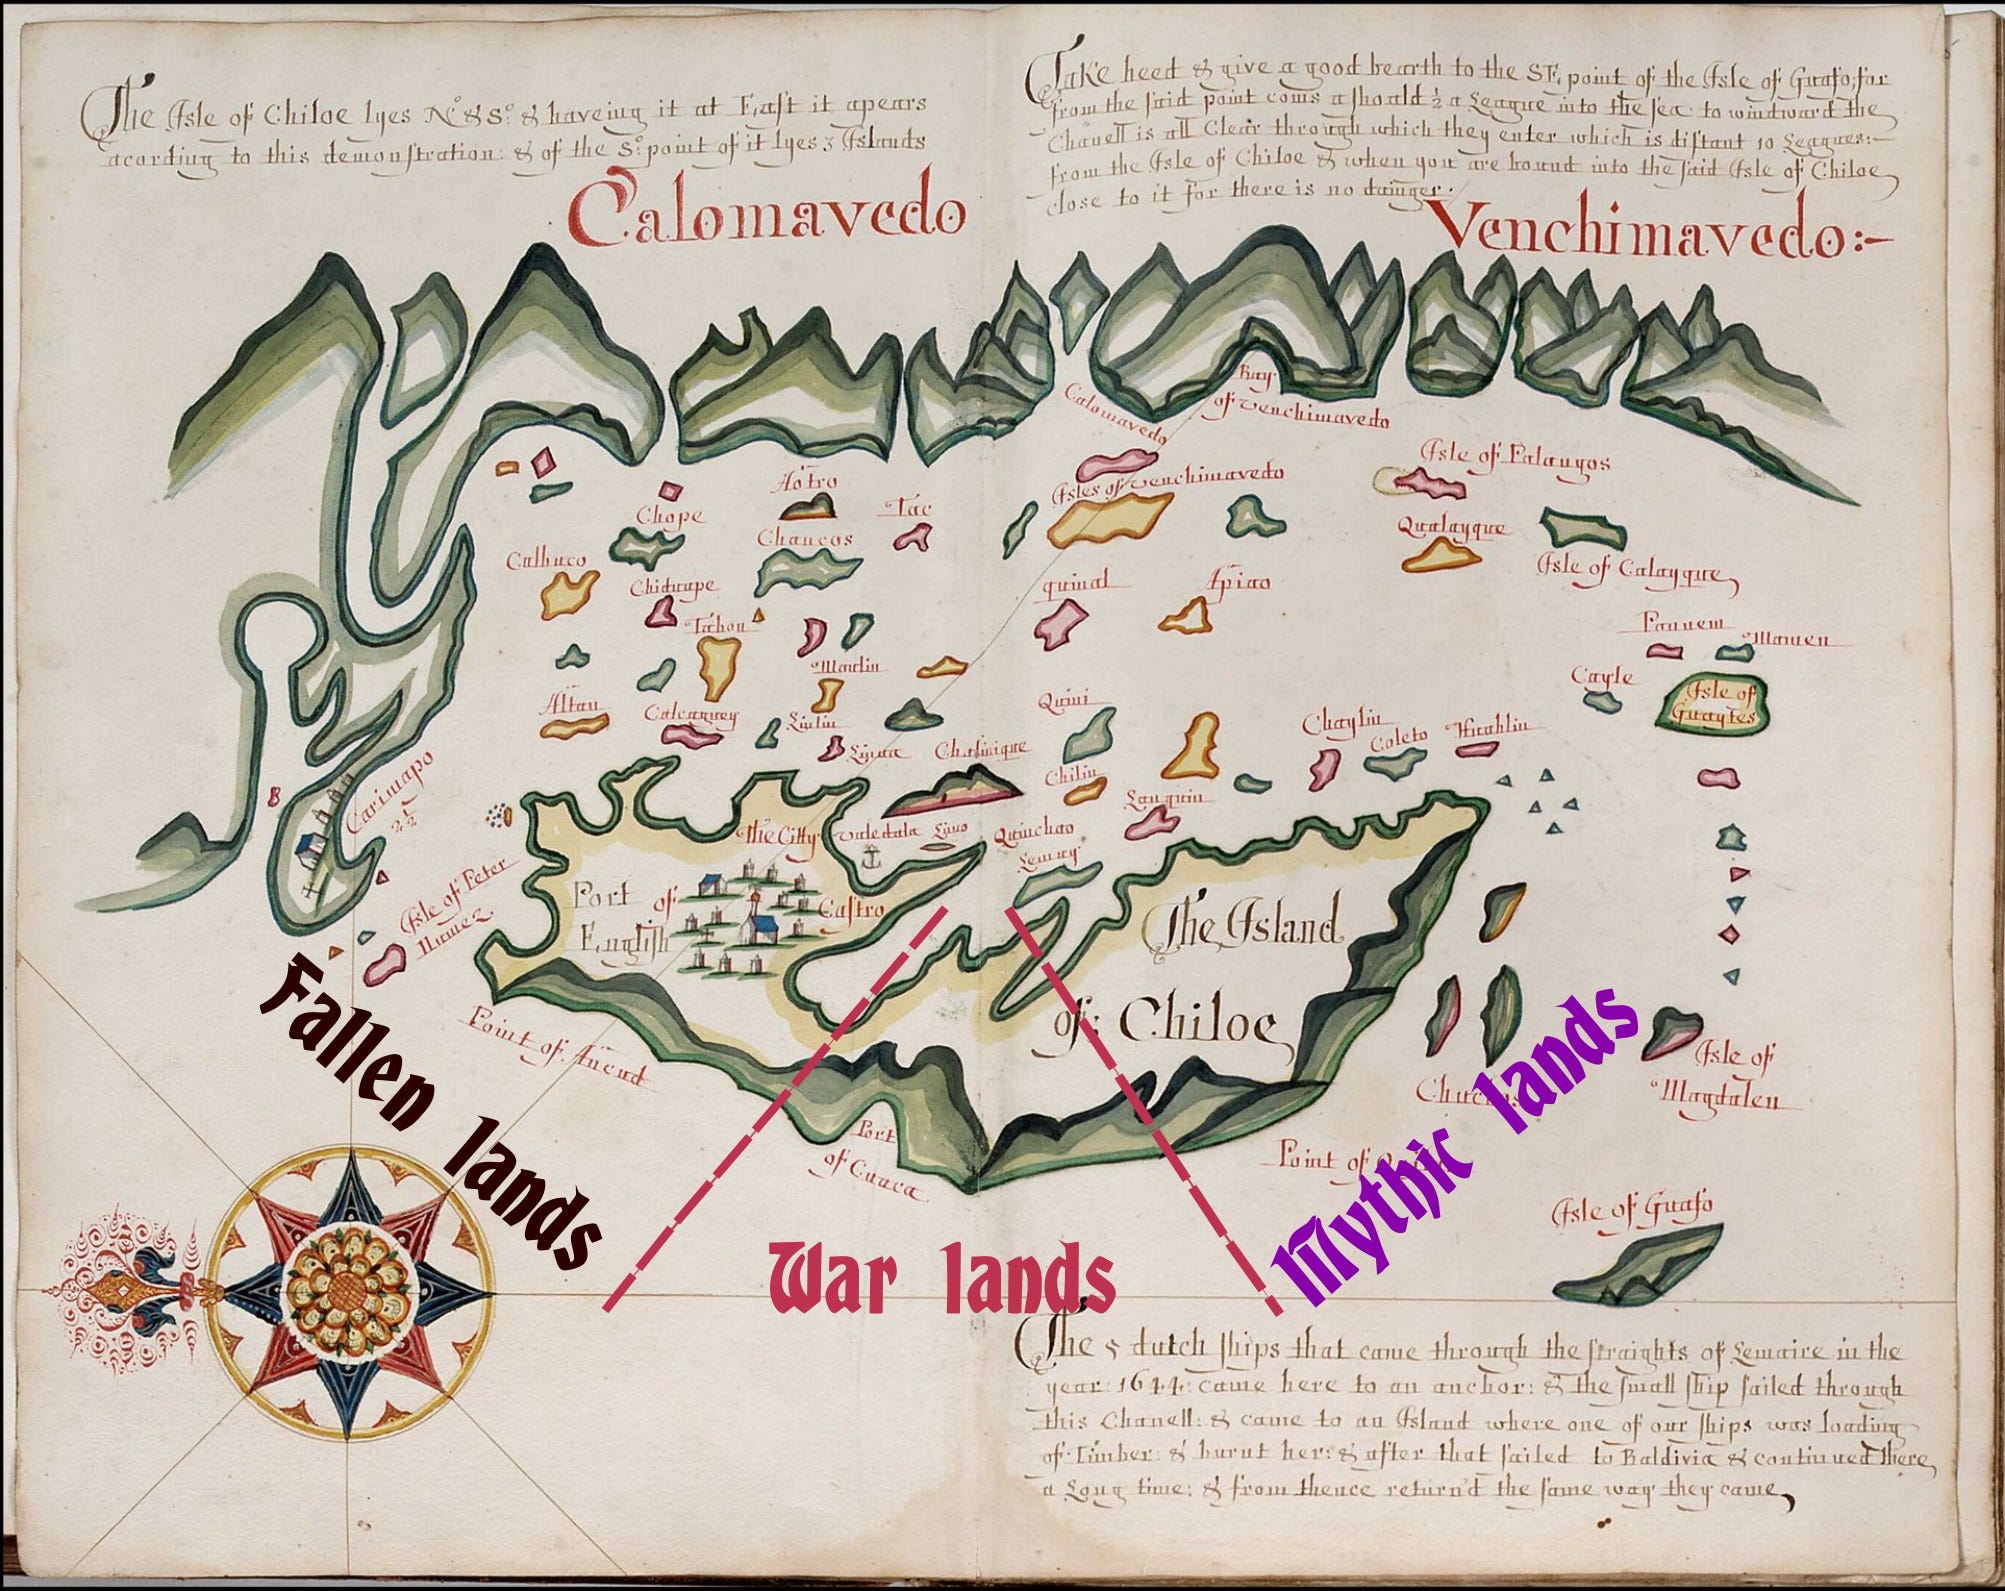 The Isle of Chiloe lyes No & So: & haveing it at East it apears
acording to this demonstration: & of the So: point of it lyes 3 Islands
Take heed & give a good bearth to the SE, point of the Isle of Guafo; for
from the said point coms a shoald ½ a League into the sea: to windward the
Chanell is all Clear through which they enter which is distant 10 Leagues:-
from the Isle of Chiloe & when you are bound into the said Isle of Chiloe
close to it for there is no daunger.
Calomavedo
Venchimavedo:-
Bay
of Venchimavedo
Calomavedo
Isles of Venchimavedo
Isle of Palangos
Aotro
Tac
Chope
Chaucos
Qualayque
Calbuco
Isle of Calayque
Chiduape
quinal
Apiao
Tabou
Pannem
Mamen
Maulin
Cayle
Isle of
Guaytes
Altau
Calcaguey
Linlin
Quini
Chaylin
Coleto
Huahlin
Linua
Chelinique
Carimapo
2½
Chilin
Lauquin
The Citty
Valedala
Lino
Quinchao
Lemuy
Isle of Peter
Nunez
Port of
English
Castro
The Island
of: Chiloe
Fallen lands
Point of Ancud
Isle of
Magdalen
Mythic lands
Port
of Cuaca
Point of
Isle of Guafo
War lands
The 5 dutch ships that came through the straights of Lemaire in the
year: 1644: came here to an anchor: & the small ship sailed through
this Chanell: & came to an Island where one of our ships was loading
of Timber: & burnt her: & after that sailed to Baldivia & continued there
a Long time; & from thence return'd the same way they came,